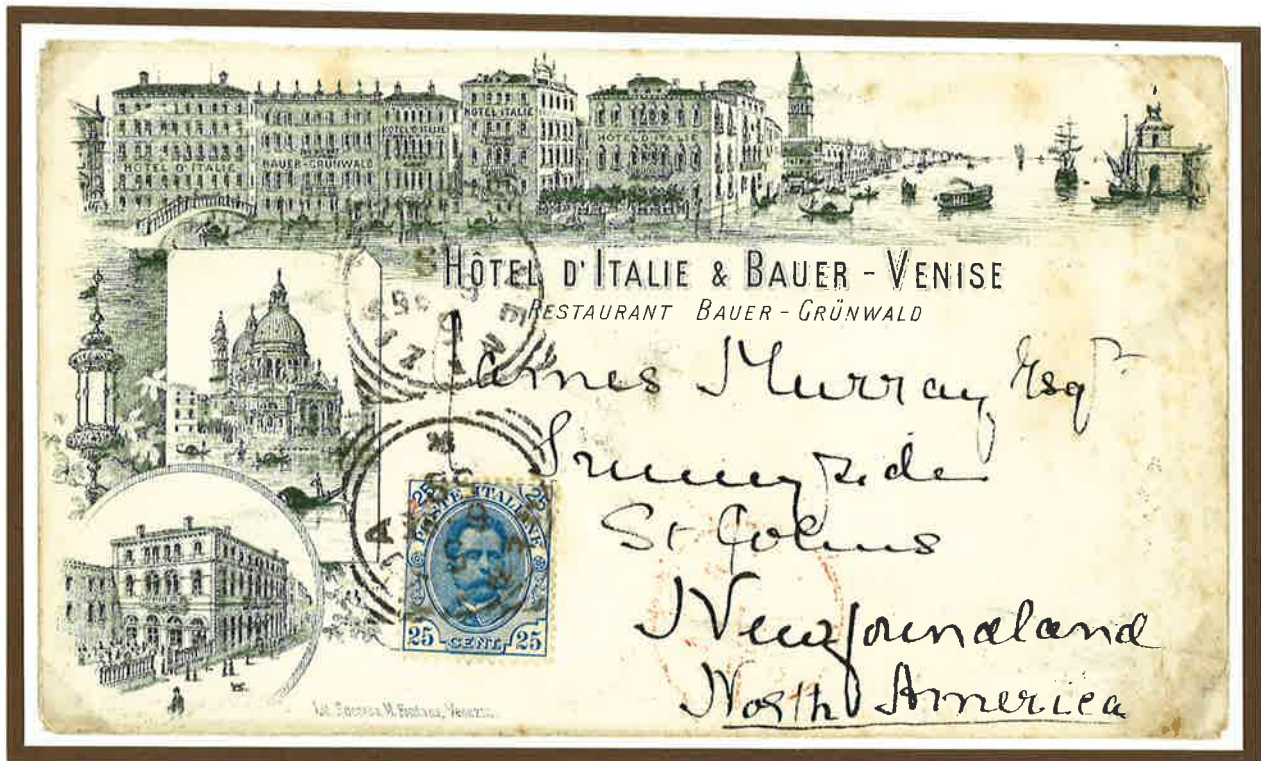 HÔTEL D'ITALIE
BAUER-GRÜNWALD
HÔTEL D'ITALIE
HÔTEL ITALIE
HÔTEL D'ITALIE
HÔTEL D'ITALIE & BAUER - VENISE
RESTAURANT BAUER - GRÜNWALD
James Murray Esqr
Sunnyside
St Johns
Newfoundland
North America
25 25
POSTE ITALIANE
25 CENT. 25
Venezia